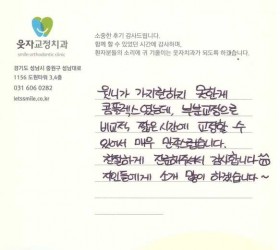 웃자교정치과
smile orthodontic clinic
경기도 성남시 중원구 성남대로
1126 도원타워 3,6층
031 606 0282
letssmile.co.kr
소중한 후기 감사드립니다.
함께 할 수 있었던 시간에 감사하며,
환자분들의 소리에 귀 기울이는 웃자교정치과가 되도록 하겠습니다.
윗니가 가지런하지 못한게
콤플렉스였는데, 부분교정으로
비교적 짧은시간에 교정할 수
있어서 매우 만족스럽습니다.
친절하게 진료해주셔서 감사합니다
지인들에게 소개 많이 하겠습니다~